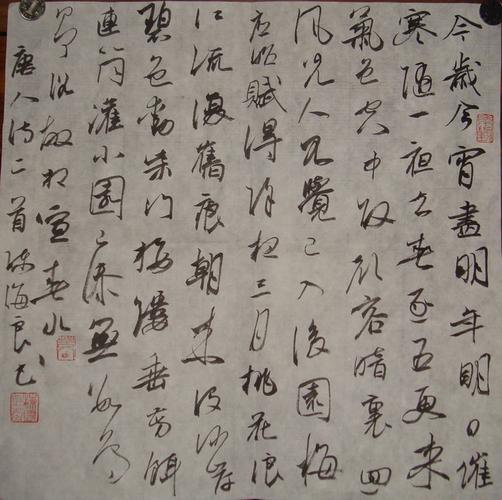 今歲今宵盡明年明日催
寒隨一夜去春逐五更来
氣色空中改顔容暗裏回
風光人不覺已入後園梅
應詔賦得除夜三月桃花浪
江流復舊痕朝来没沙尾
碧色動柴門接縷垂芳餌
連筒灌小園已添無數鳥
争浴故相喧春水
唐人诗二首陈海良书